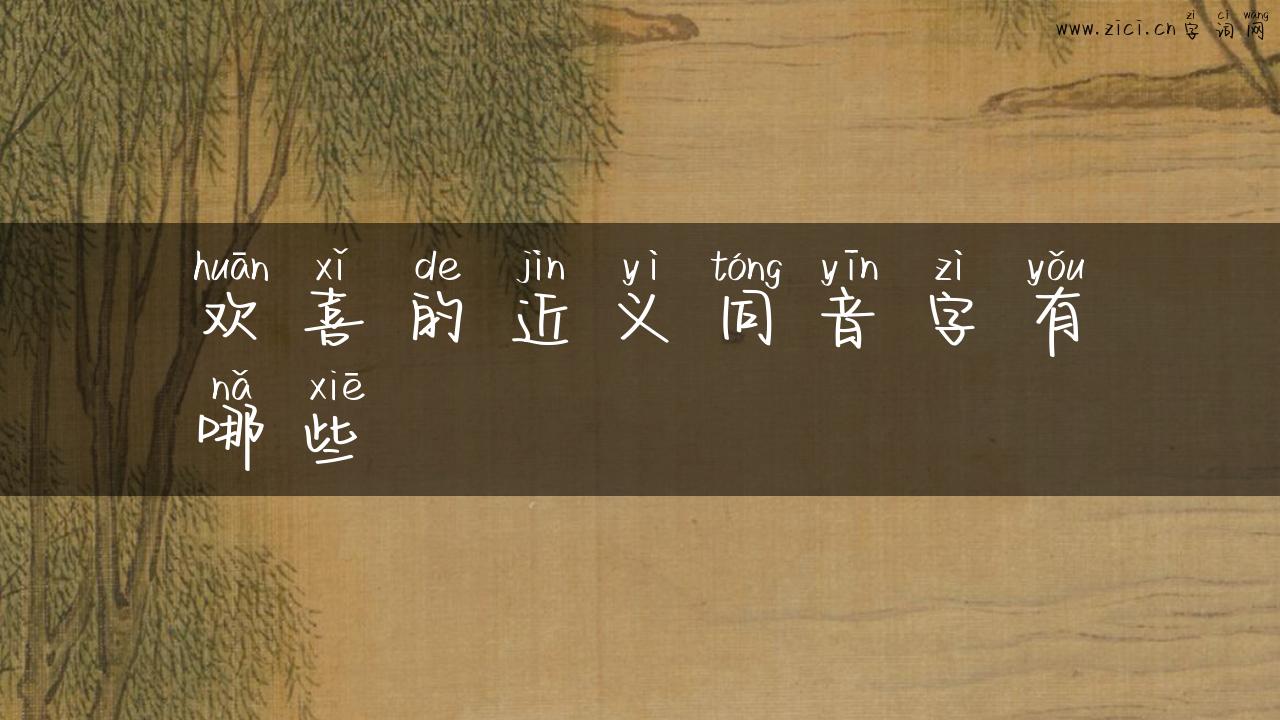 zì cí wǎng
www.zici.cn 字词网
huān xǐ de jìn yì tóng yīn zì yǒu
欢喜的近义同音字有
nǎ xiē
哪些